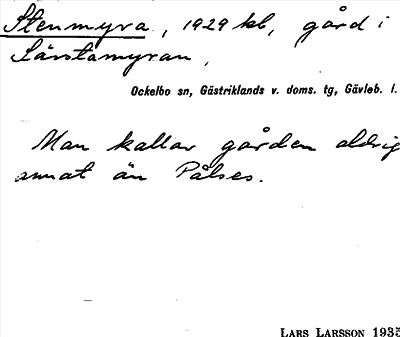 Stenmyra, 1929 kb, gård i
Lärstamyran,
Ockelbo sn, Gästriklands v. doms. tg, Gävleb. l.
Man kallar gården aldrig
annat än Pålses.
LARS LARSSON 1935